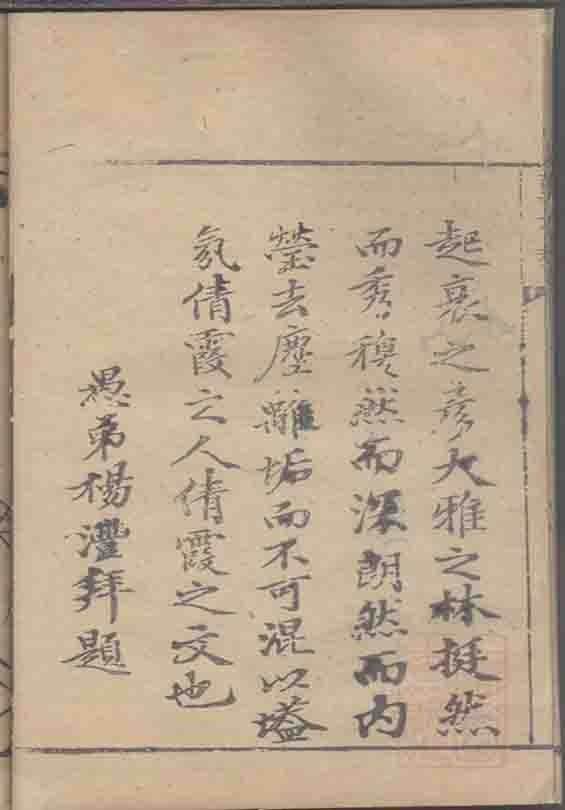 起衰之彥大雅之林挺然
而秀穆然而深朗然而內
瑩去塵離垢而不可混以壒
氛倩霞之人倩霞之文也
愚弟楊灃拜題